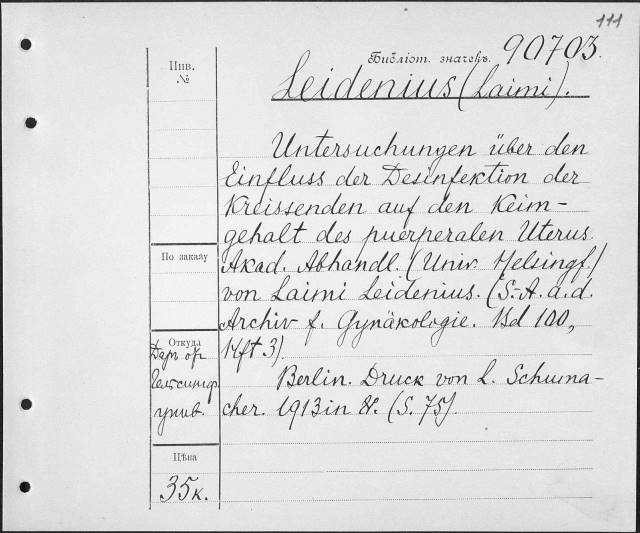 111
Библіот. значекъ. 90703.
Инв.
№
Leidenius (Laimi).
Untersuchungen über den
Einfluss der Desinfektion der
Kreissenden auf den Keim-
gehalt des puerperalen Uterus.
По заказу
Akad. Abhandl. (Univ. Helsingf.)
von Laimi Leidenius. (S.-A. a. d.
Archiv f. Gynäkologie. Bd 100,
Hft 3).
Откуда
Даръ от
Гельсингф.
унив.
Berlin. Druck von L. Schuma-
cher. 1913 in 8º. (S. 75).
Цѣна
35 к.